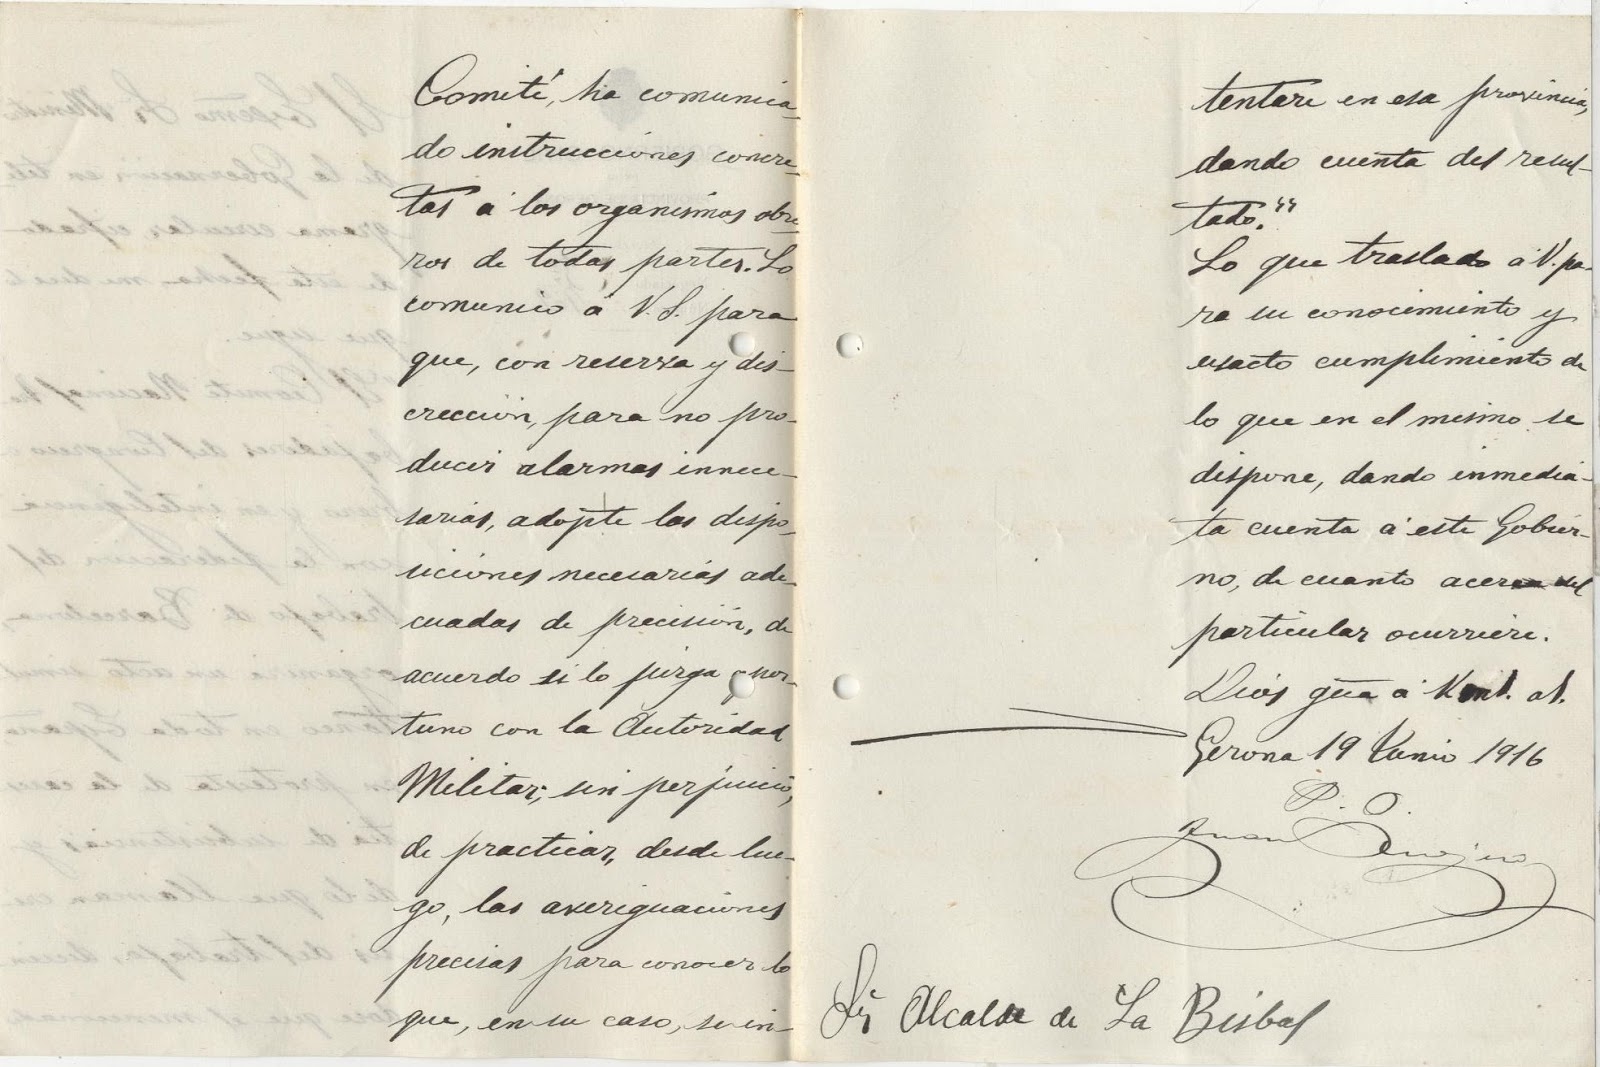 Comité, ha comunica-
do instrucciones concre-
tas á los organismos obre-
ros de todas partes. Lo
comunico á V. S. para
que, con reserva y dis-
crección, para no pro-
ducir alarmas innece-
sarias, adopte las dispo-
siciones necesarias ade-
cuadas de precisión, de
acuerdo si lo juzga opor-
tuno con la Autoridad
Militar; sin perjuicio,
de practicar, desde lue-
go, las averiguaciones
precisas para conocer lo
que, en su caso, se in-
tentare en esa provincia,
dando cuenta del resul-
tado."
Lo que traslado á V. pa-
ra su conocimiento y
exacto cumplimiento de
lo que en el mismo se
dispone, dando inmedia-
ta cuenta á este Gobier-
no, de cuanto acerca del
particular ocurriere.
Dios gũa á V. m. a.
Gerona 19 Junio 1916
P. O.
Juan
Sr. Alcalde de La Bisbal